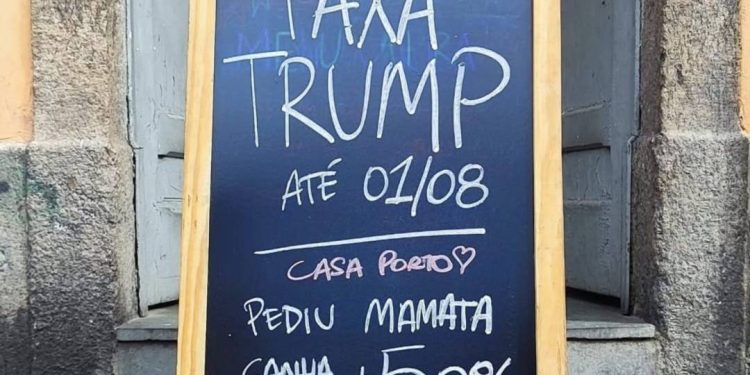 TAXA
TRUMP
ATÉ 01/08
CASA PORTO
PEDIU MAMATA
GANHA +50%